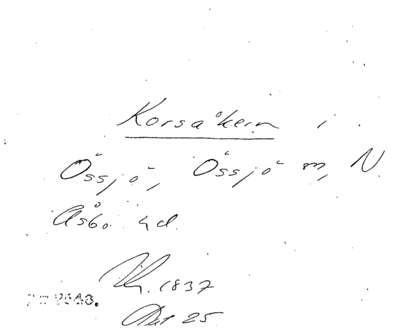 Korsåkern i
Össjö, Össjö sn, N.
Åsbo hd.
1837
Akt 25